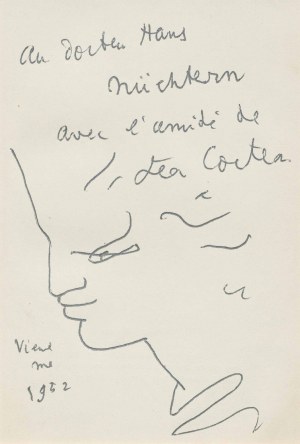 au docteur Hans
Nüchtern
avec l'amitié de
Jean Cocteau
Vienne
1952